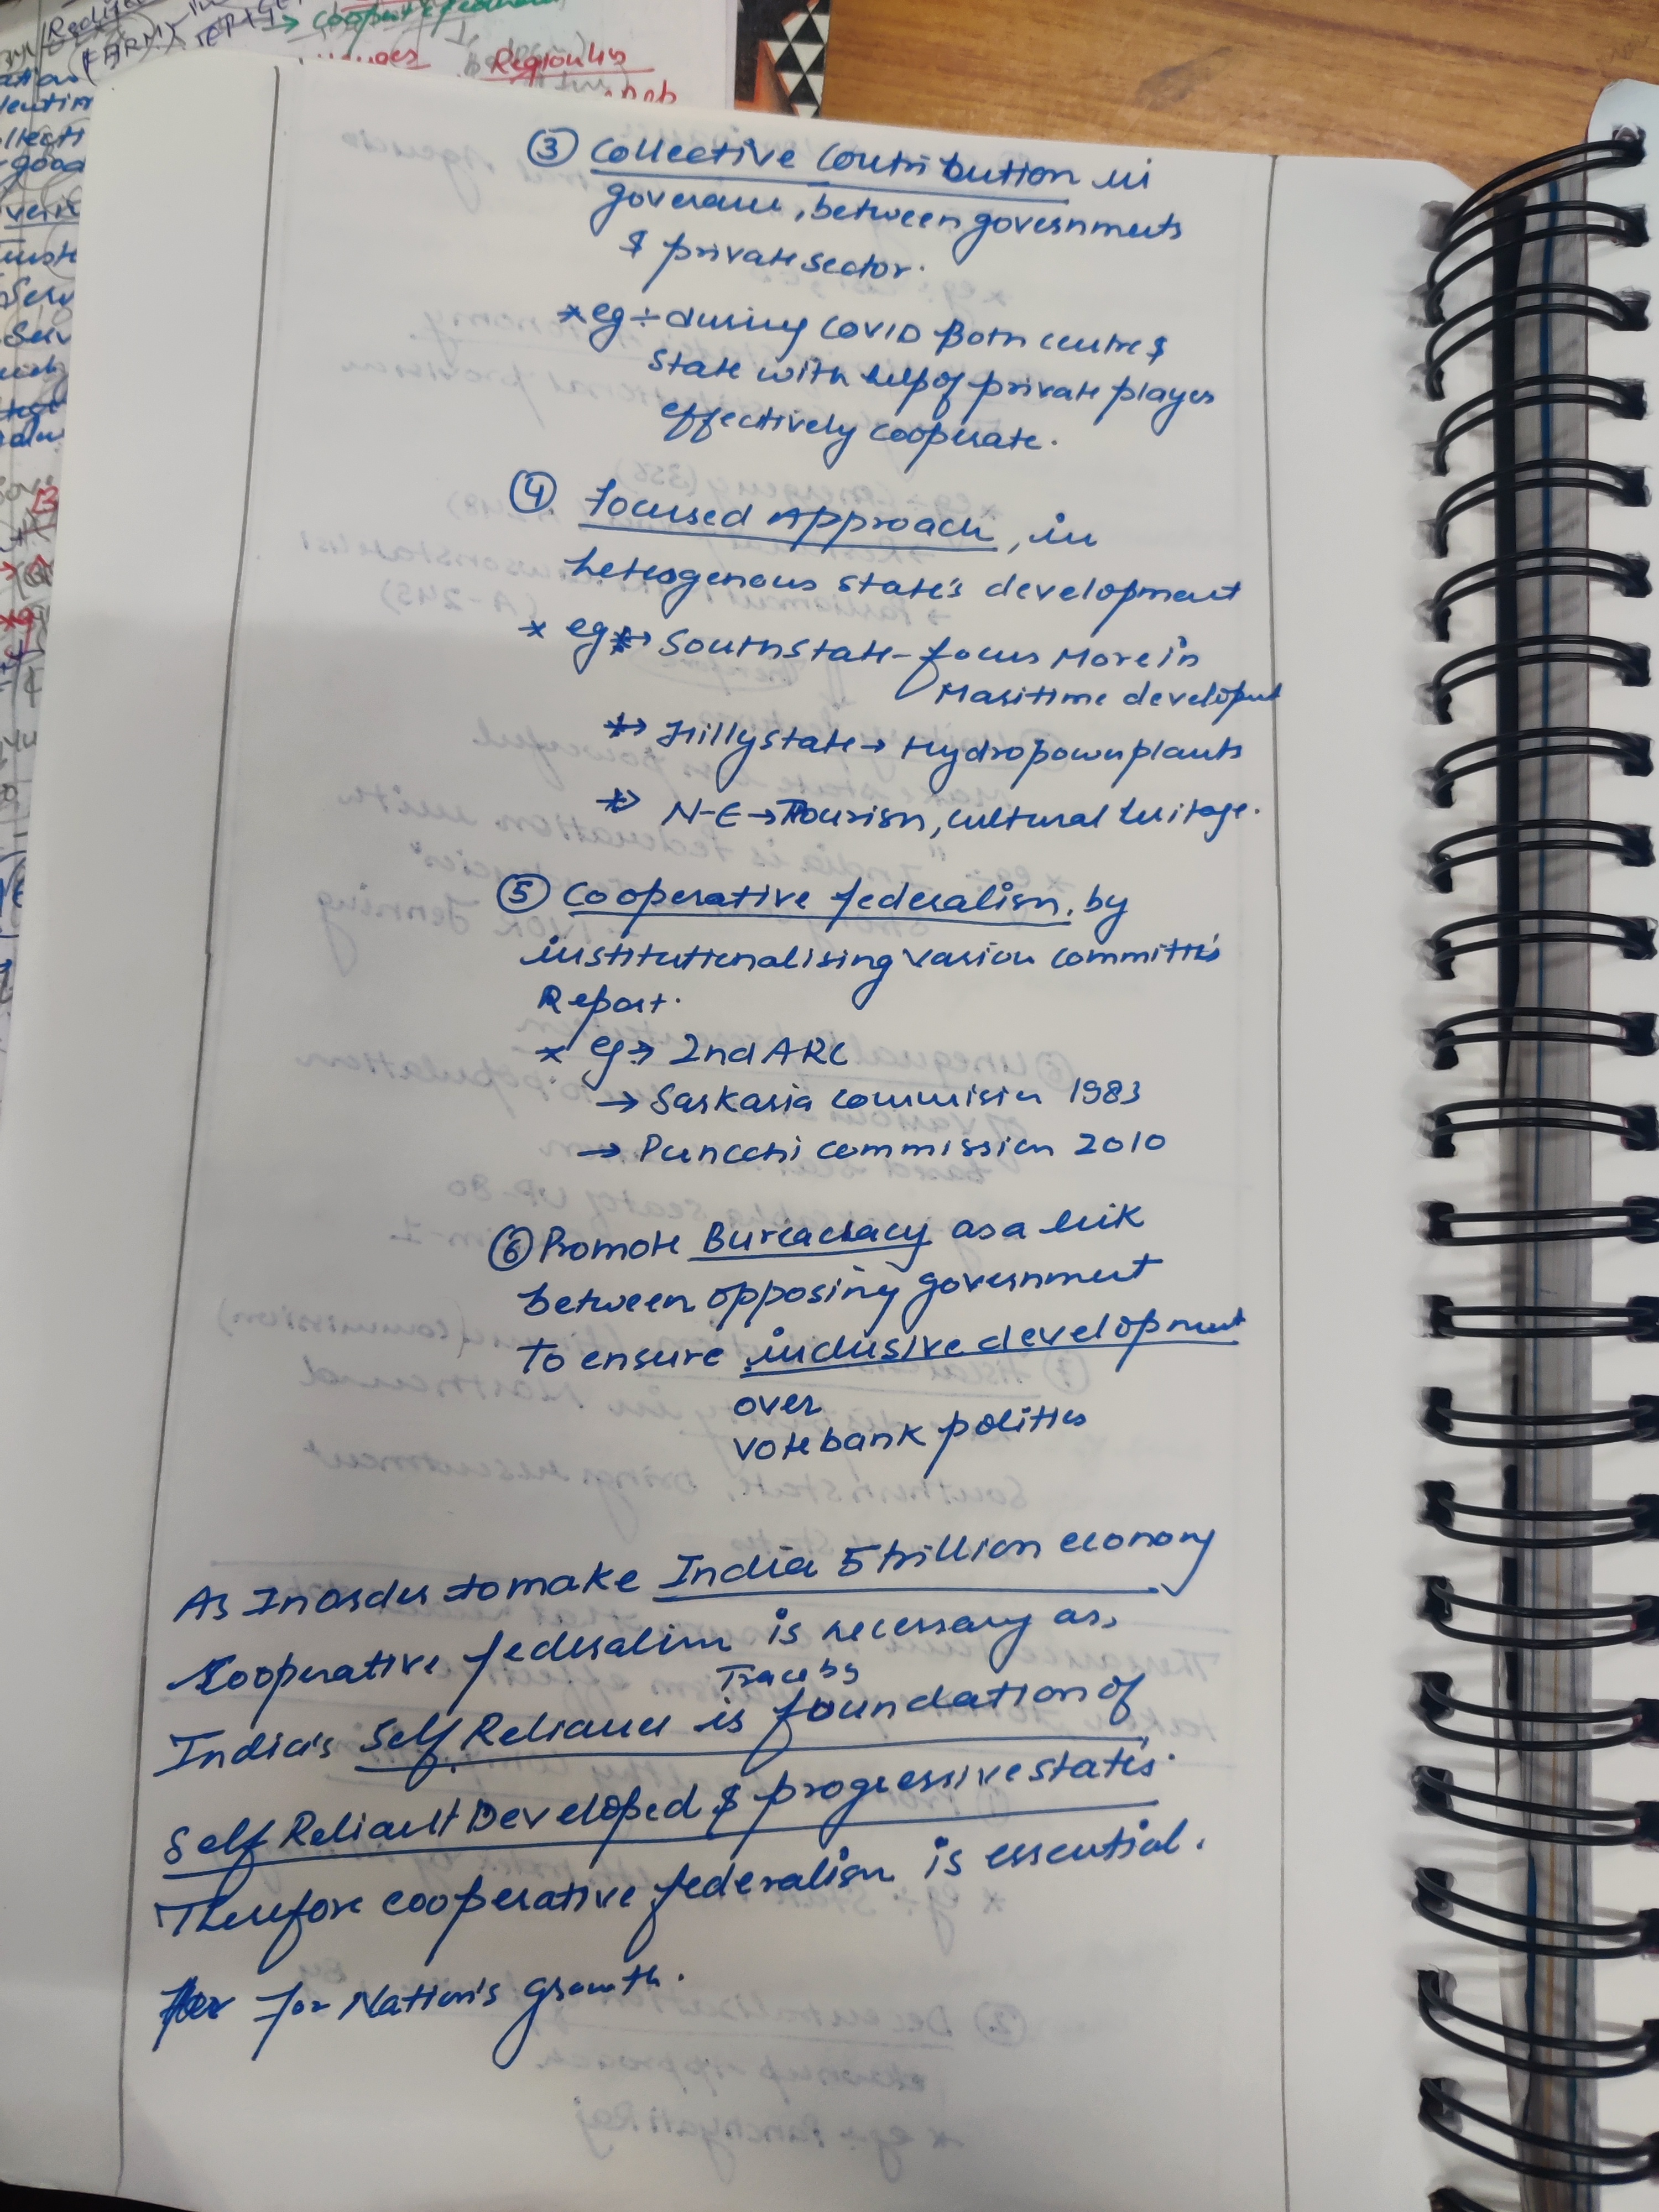 ③ Collective Contribution in
goverance, between governments
& private sector.
* eg ÷ during COVID Both centre &
State with help of private player
effectively cooperate.
④ Focused Approach, in
heterogenous state's development
* eg → South State - focus More in
Maritime develop
→ Hilly state → Hydropower plants
→ N-E → Tourism, cultural heritage.
⑤ Cooperative federalism, by
institutionalising various committee's
Report.
* eg → 2nd ARC
→ Sarkaria commision 1983
→ Puncchi commission 2010
⑥ Promote Bureacracy as a link
between opposing government
to ensure inclusive development
over
vote bank politics
As In order to make India 5 trillion economy
Cooperative federalism is necessary as,
India's Self Reliance is foundation of
Self Reliant Developed & progressive state's.
Therefore cooperative federalism is essential.
for Nation's Growth.